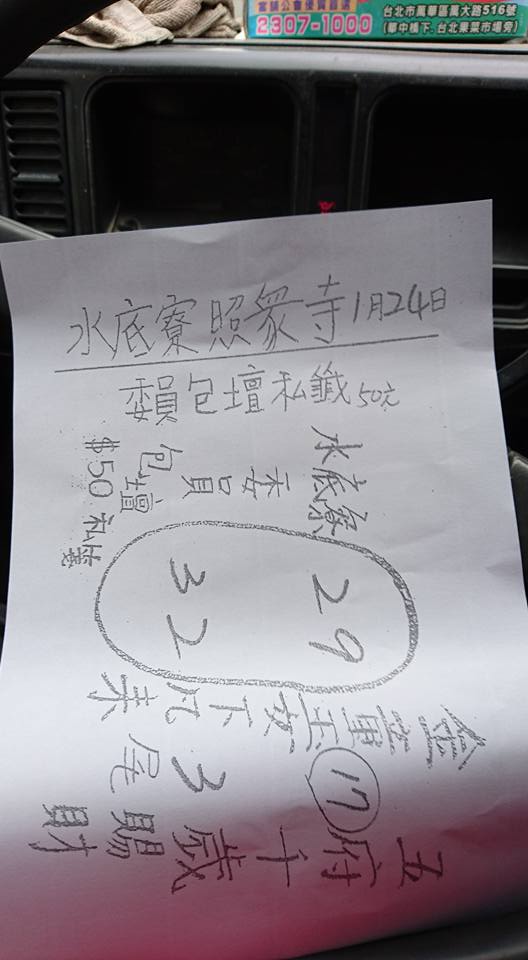 2307-1000
台北市萬華區萬大路516號
(華中橋下.台北果菜市場旁)
水底寮照眾寺1月24日
包壇私籤50元
水底寮
委員
包壇
$50 私籤
29
32
金童玉女下凡來
17
3尾
五府千歲賜財